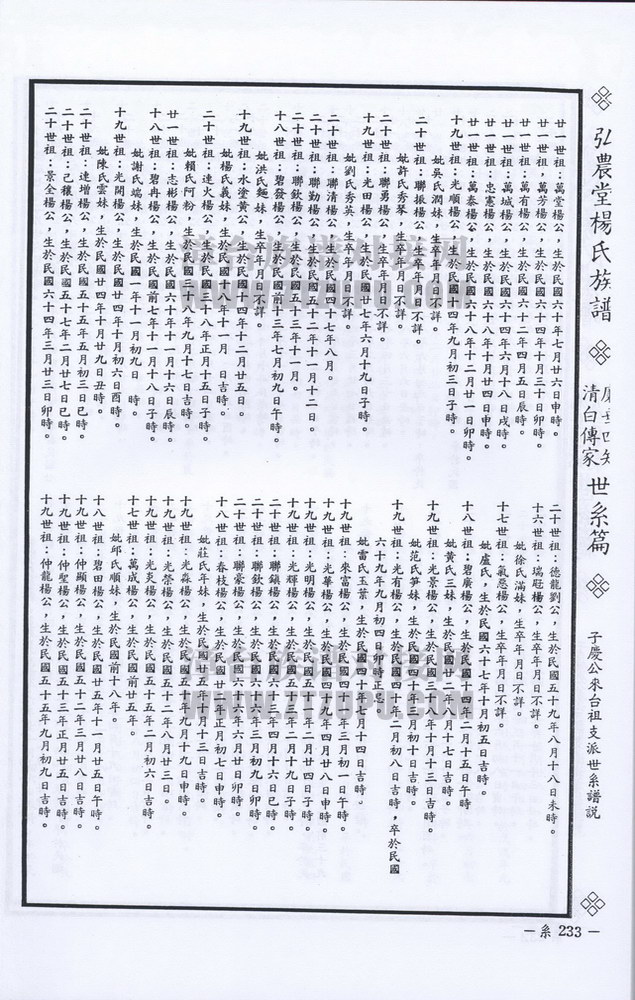 弘農堂楊氏族譜
清白傳家
世系篇
子慶公來台祖支派世系譜説
廿一世祖：萬堂楊公，生於民國六十年七月廿六日申時。
廿一世祖，萬芳楊公，生於民國六十四年十月三十日卯時。
廿一世祖：萬有楊公，生於民國六十二年四月五日辰時。
廿一世祖：萬城楊公，生於民國六十四年六月十八日戌時。
廿一世祖：忠憲楊公，生於民國六十八年十月廿四日申時。
廿一世祖：萬泰楊公，生於民國六十八年十二月廿一日卯時。
十九世祖：光順楊公，生於民國十四年九月初三日子時。
妣吳氏潤妹，生卒年月日不詳。
二十世祖：聯振楊公，生卒年月日不詳。
妣許氏秀琴，生卒年月日不詳。
二十世祖：聯勇楊公，生卒年月日不詳。
十九世祖：光田楊公，生於民國廿七年六月十九日子時。
妣劉氏秀英，生卒年月日不詳。
二十世祖：聯清楊公，生於民國四十七年八月。
二十世祖：聯勤楊公，生於民國五十二年十一月十二日。
二十世祖：聯欽楊公，生於民國五十三年十一月。
十八世祖：碧發楊公，生於民國前十三年七月初九日午時。
妣洪氏麵妹，生卒年月日不詳。
十九世祖：水塗黃公，生於民國十四年十二月廿五日。
妣楊氏義妹，生於民國十八年十一月　日吉時。
二十世祖：連火楊公，生於民國三十八年正月十五日子時。
妣賴氏阿粉，生於民國三十八年九月十七日吉時。
廿一世祖：志彬楊公，生於民國六十年十一月十六日辰時。
十八世祖：碧冉楊公，生於民國前七年十一月十八日子時。
妣謝氏端妹，生於民國一年十一月初九日　時。
十九世祖：光開楊公，生於民國廿四年十月初六日酉時。
妣陳氏雲妹，生於民國廿四年十月廿九日丑時。
二十世祖：連增楊公，生於民國五十五年五月初三日巳時。
二十世祖：己穰楊公，生於民國五十七年二月廿七日巳時。
二十世祖：景全楊公，生於民國六十四年三月廿三日卯時。
二十世祖：德龍劉公，生於民國五十九年八月十八日未時。
十六世祖：瑞冠楊公，生卒年月日不詳。
妣徐氏滿妹，生卒年月日不詳。
十七世祖：氣恩楊公，生卒年月日不詳。
妣盧氏，生於民國六十七年十月初五日吉時。
十八世祖：碧廣楊公，生於民國十四年二月十五日午時。
妣黃氏三妹，生於民國廿二年八月十七日吉時。
十九世祖：光景楊公，生於民國三十九年十月十三日吉時。
妣范氏笋妹，生於民國四十年三月初十日吉時。
十九世祖：光有楊公，生於民國四十二年二月初八日吉時，卒於民國
六十九年九月初四日卯時正忌。
妣雷氏玉葉，生於民國四十年七月十四日吉時。
十九世祖：來富楊公，生於民國四十一年三月初一日午時。
十九世祖：光華楊公，生於民國四十九年四月廿八日申時。
十九世祖：光明楊公，生於民國五十二年二月廿四日子時。
十九世祖：光輝楊公，生於民國五十五年二月十九日子時。
二十世祖：聯鎮楊公，生於民國六十三年四月十六日巳時。
二十世祖：聯欽楊公，生於民國六十六年三月初九日卯時。
二十世祖：聯豪楊公，生於民國六十六年六月廿日卯時。
十八世祖：春枝楊公，生於民國廿二年正月初七日申時。
妣莊氏年妹，生於民國廿五年十月十三日吉時。
十九世祖：光淼楊公，生於民國五十年九月十九日申時。
十九世祖：光榮楊公，生於民國五十四年八月廿三日。
十九世祖：光炎楊公，生於民國五十五年二月初六日吉時。
十七世祖：萬成楊公，生於民國前廿五年。
妣邱氏順妹，生於民國前十八年。
十八世祖：碧田楊公，生於民國廿五年十一月廿五日午時。
十九世祖：仲顯楊公，生於民國五十二年三月廿八日吉時。
十九世祖：仲聖楊公，生於民國五十三年正月廿五日吉時。
十九世祖：仲龍楊公，生於民國五十五年九月初九日吉時。
－系 233－